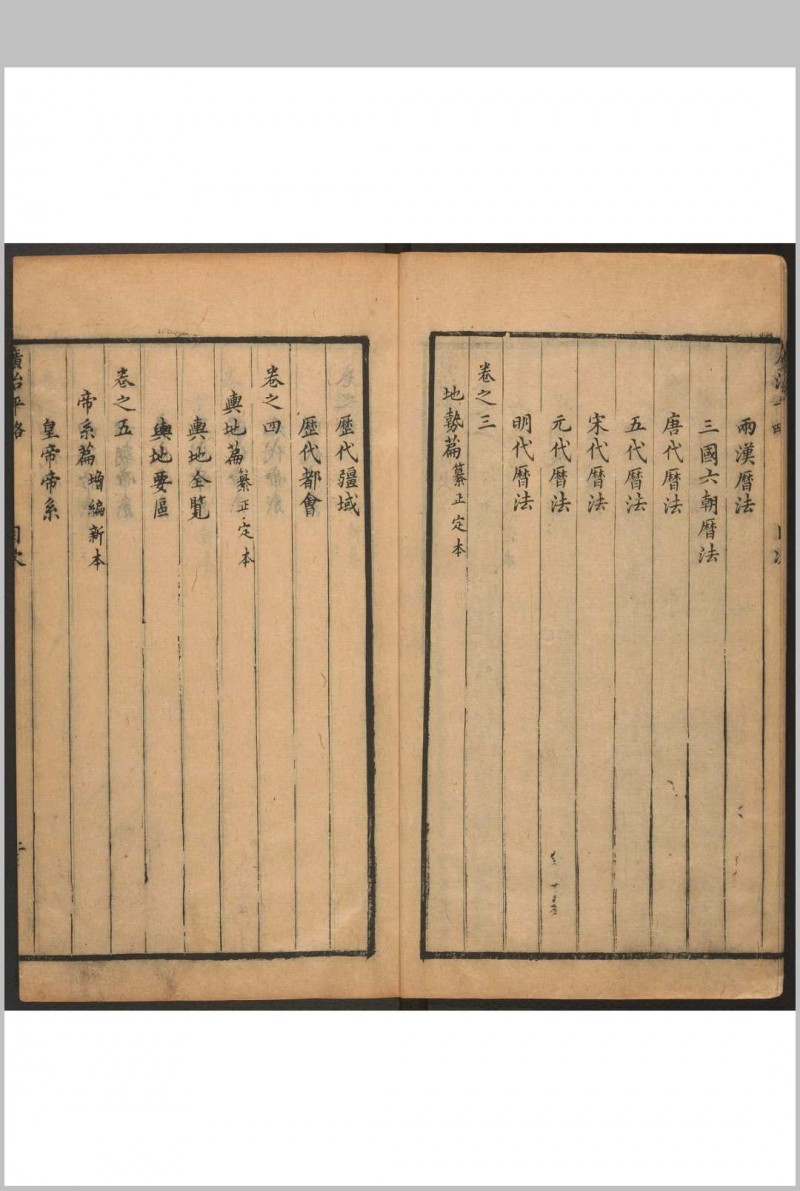 兩漢曆法
三國六朝曆法
唐代曆法
五代曆法
宋代曆法
元代曆法
明代曆法
卷之三
地勢篇 纂正定本
歷代疆域
歷代都會
卷之四
輿地篇 纂正定本
輿地全覽
輿地要區
卷之五
帝系篇 增編新本
皇帝帝系
廣治平略 目次